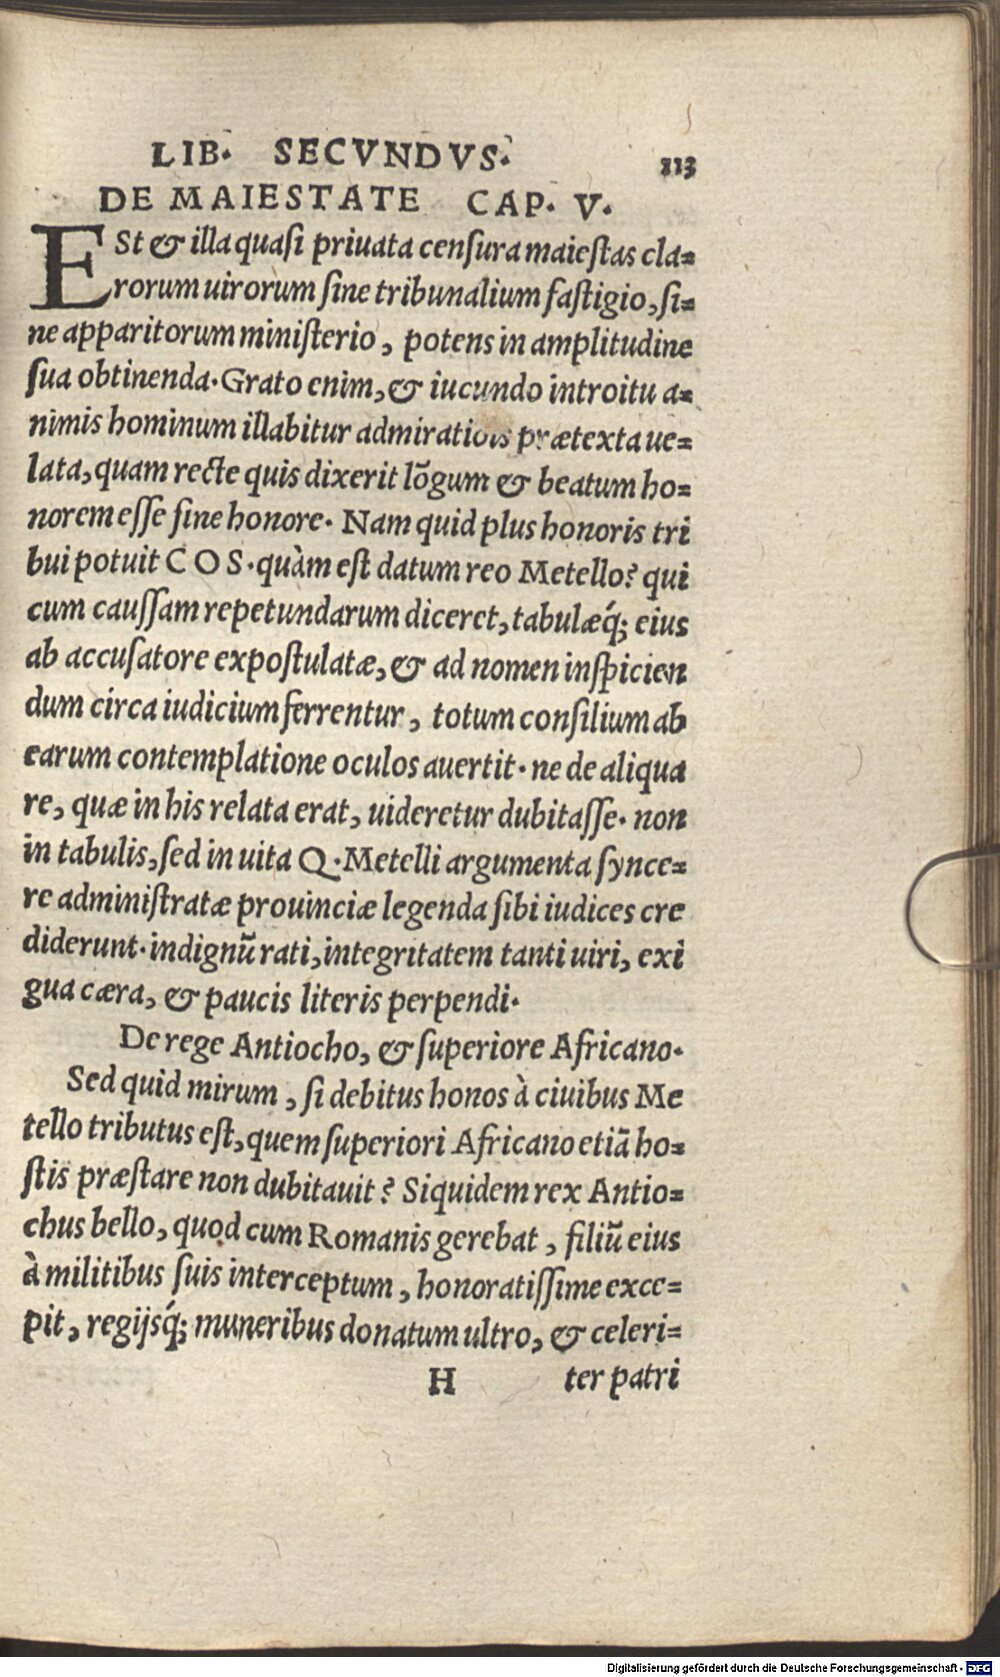 LIB. SECVNDVS. 113
DE MAIESTATE CAP. V.
ESt & illa quasi priuata censura maiestas cla=
rorum uirorum sine tribunalium fastigio, si=
ne apparitorum ministerio, potens in amplitudine
sua obtinenda. Grato enim, & iucundo introitu a=
nimis hominum illabitur admirationis prætexta ue=
lata, quam recte quis dixerit lõgum & beatum ho=
norem esse sine honore. Nam quid plus honoris tri
bui potuit COS. quàm est datum reo Metello? qui
cum caussam repetundarum diceret, tabulæq́; eius
ab accusatore expostulatæ, & ad nomen inspicien
dum circa iudicium ferrentur, totum consilium ab
earum contemplatione oculos auertit. ne de aliqua
re, quæ in his relata erat, uideretur dubitasse. non
in tabulis, sed in uita Q. Metelli argumenta synce=
re administratæ prouinciæ legenda sibi iudices cre
diderunt. indignũ rati, integritatem tanti uiri, exi
gua cæra, & paucis literis perpendi.
De rege Antiocho, & superiore Africano.
Sed quid mirum, si debitus honos à ciuibus Me
tello tributus est, quem superiori Africano etiã ho=
stis præstare non dubitauit? Siquidem rex Antio=
chus bello, quod cum Romanis gerebat, filiũ eius
à militibus suis interceptum, honoratissime exce=
pit, regijsq́; muneribus donatum ultro, & celeri=
H ter patri
Digitalisierung gefördert durch die Deutsche Forschungsgemeinschaft - DFG